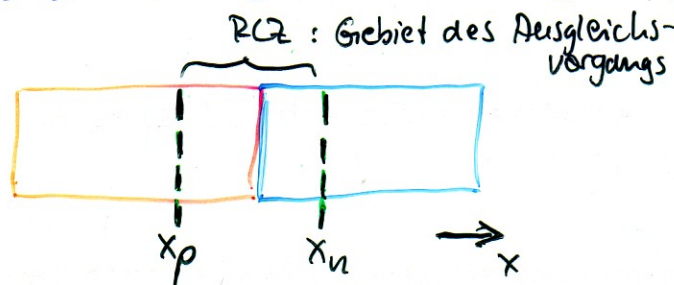 RLZ : Gebiet des Ausgleichs-
vorgangs
xp xn
x